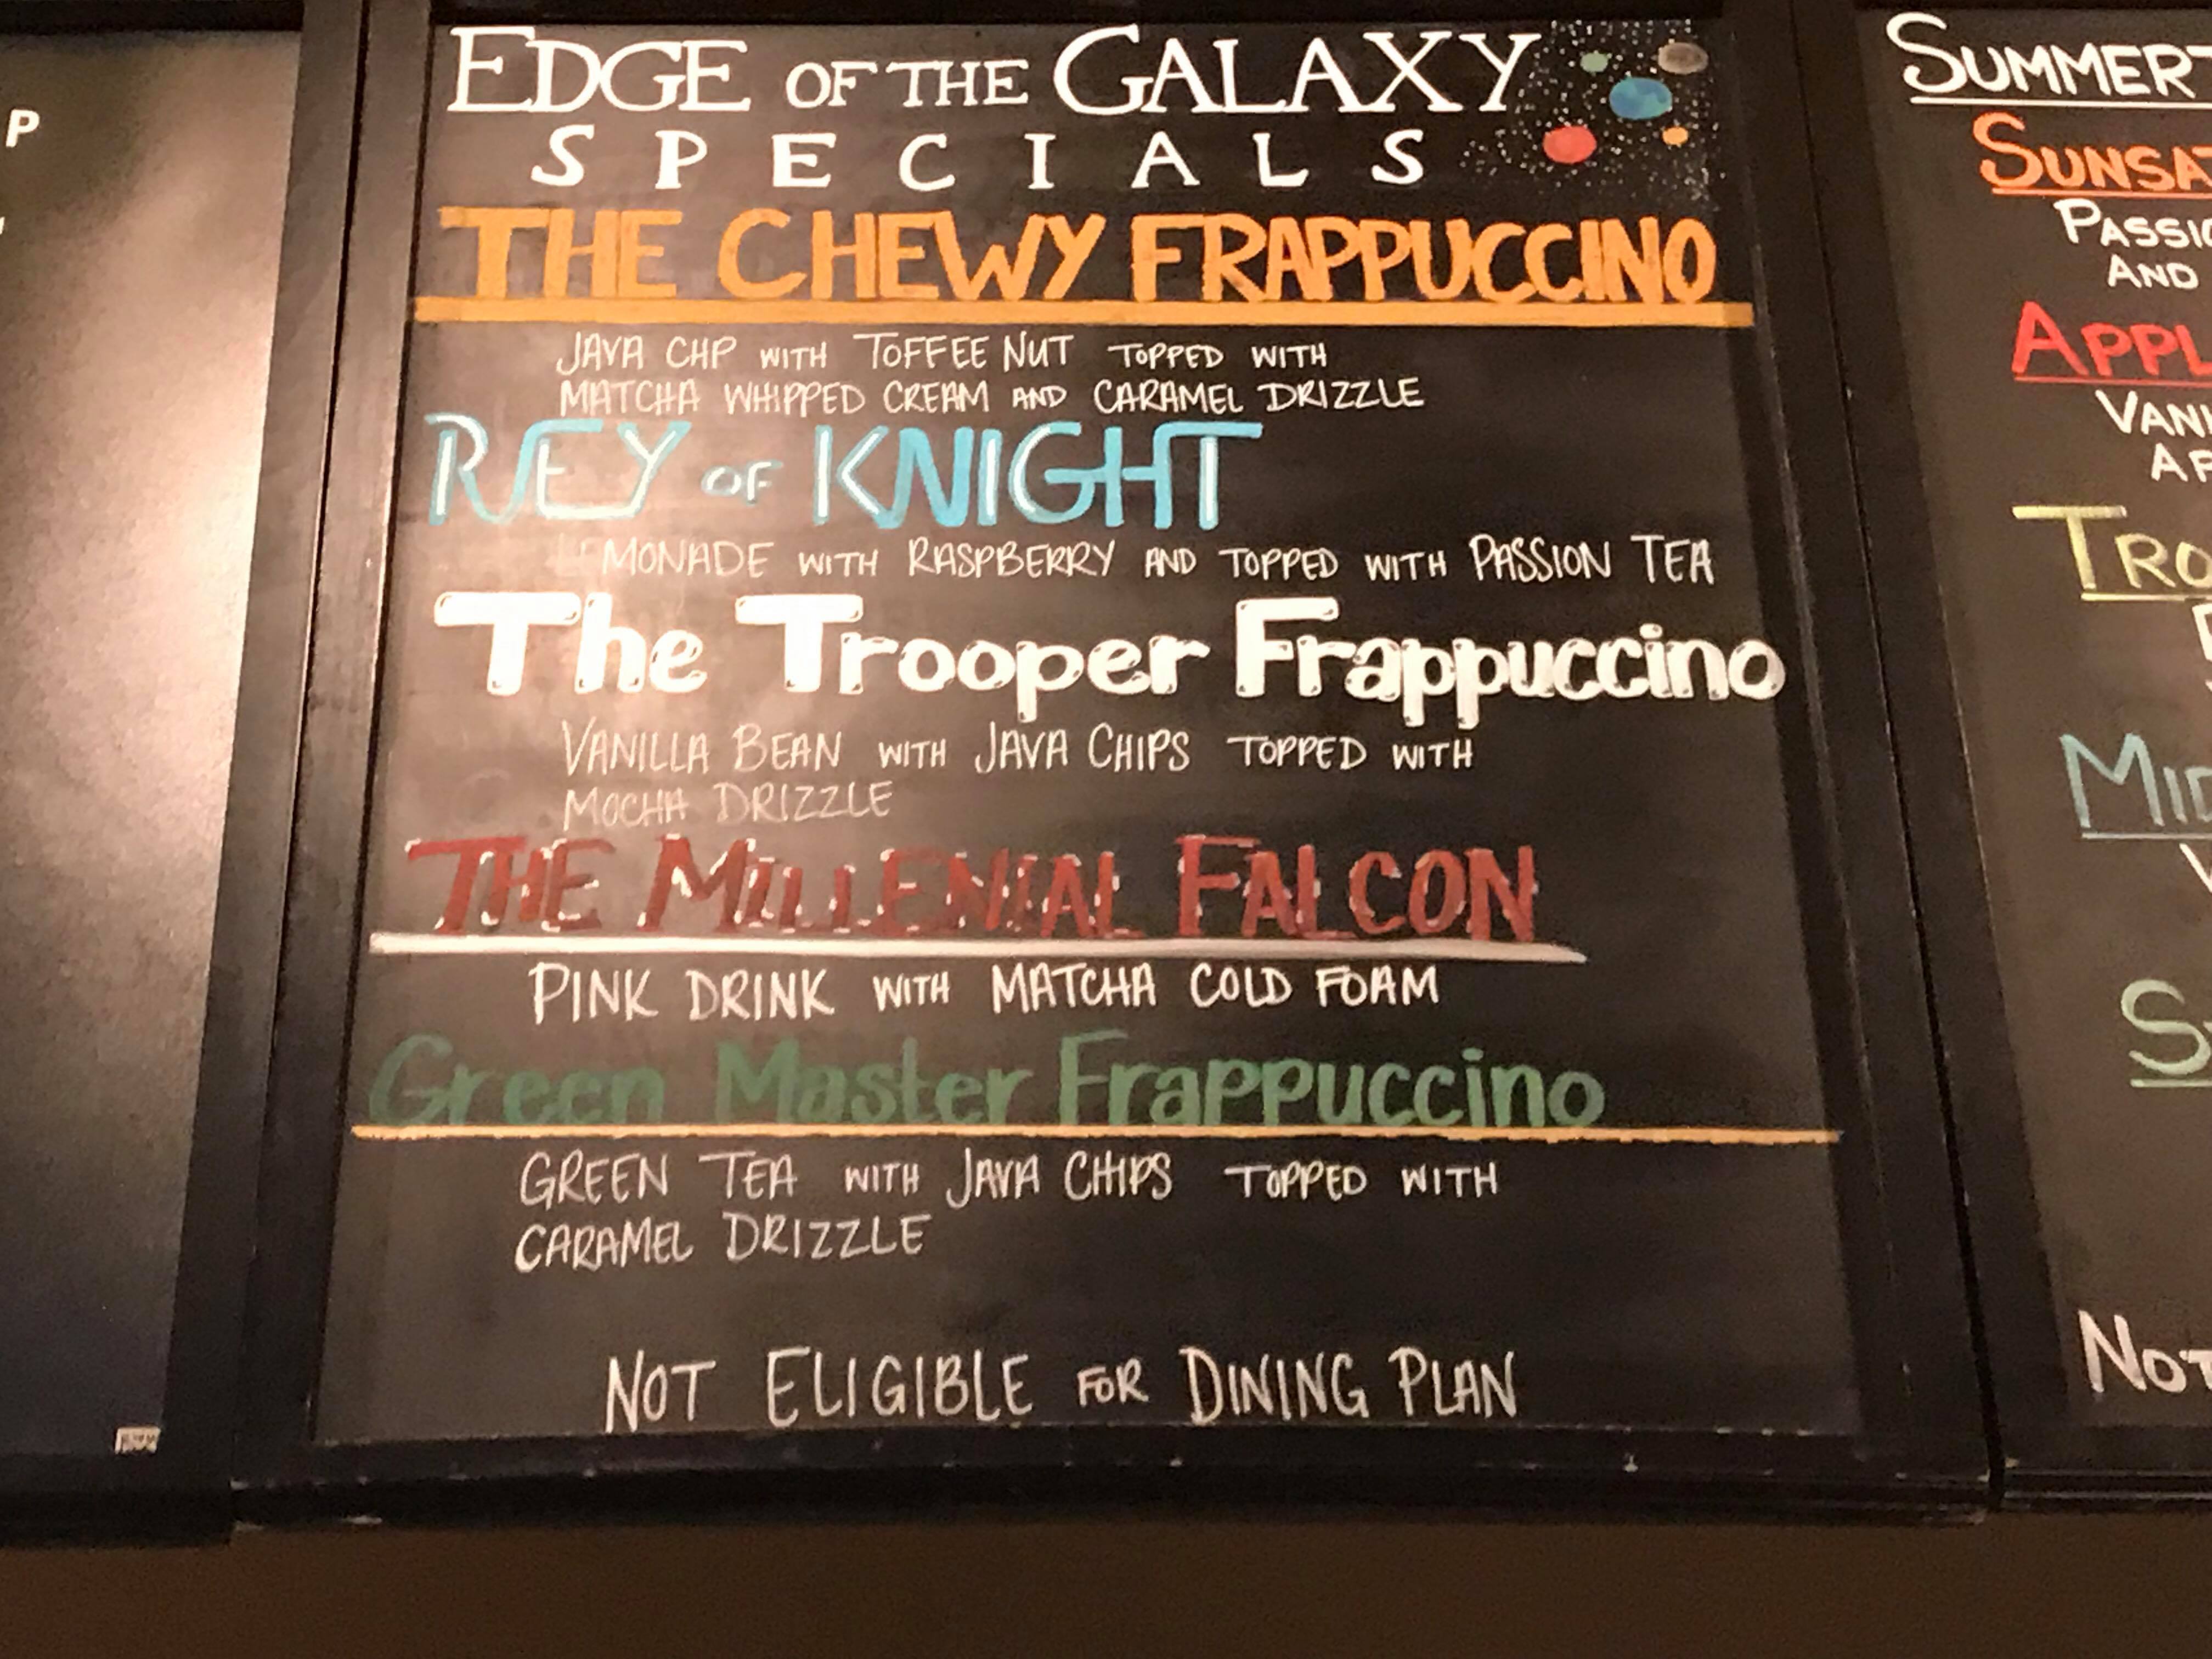 P
EDGE OF THE GALAXY
SPECIALS
THE CHEWY FRAPPUCCINO
JAVA CHP WITH TOFFEE NUT TOPPED WITH
MATCHA WHIPPED CREAM AND CARAMEL DRIZZLE
REY OF KNIGHT
LEMONADE WITH RASPBERRY AND TOPPED WITH PASSION TEA
The Trooper Frappuccino
VANILLA BEAN WITH JAVA CHIPS TOPPED WITH
MOCHA DRIZZLE
THE MILLENIAL FALCON
PINK DRINK WITH MATCHA COLD FOAM
Green Master Frappuccino
GREEN TEA WITH JAVA CHIPS TOPPED WITH
CARAMEL DRIZZLE
NOT ELIGIBLE FOR DINING PLAN
SUMMERT
SUNSA
PASSIO
AND
APPL
VANI
AP
TRO
MID
S
NOT